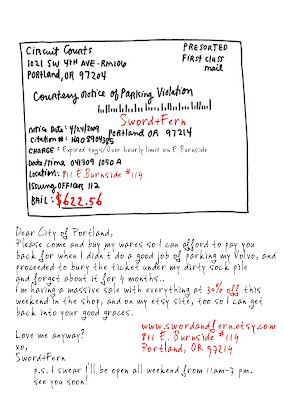 Circuit Courts
1021 SW 4TH AVE-RM106
PORTLAND, OR 97204
PRESORTED
FIRST Class
mail
Courtesy Notice of Parking Violation
Sword+Fern
PORTLAND OR 97214
Notice Date: 4/24/2009
Citation #: HA08904385
CHARGE: Expired tags/Over hourly limit on E Burnside
Date/Time 041309 1050 A
Location: 811 E. Burnside #114
ISSuing OFFicer 112
BAIL: $622.56
Dear City of Portland,
Please come and buy my wares so I can afford to pay you
back for when I didn't do a good job of parking my Volvo, and
proceeded to bury the ticket under my dirty sock pile
and forget about it for 4 months..
I'm having a massive sale with everything at 30% off this
weekend in the shop, and on my etsy site, too so I can get
back into your good graces.
Love me anyway?
xo,
Sword+Fern
www.swordandfern.etsy.com
811 E. Burnside #114
Portland, OR 97214
p.s. I swear I'll be open all weekend from 11am-7 pm.
see you soon!